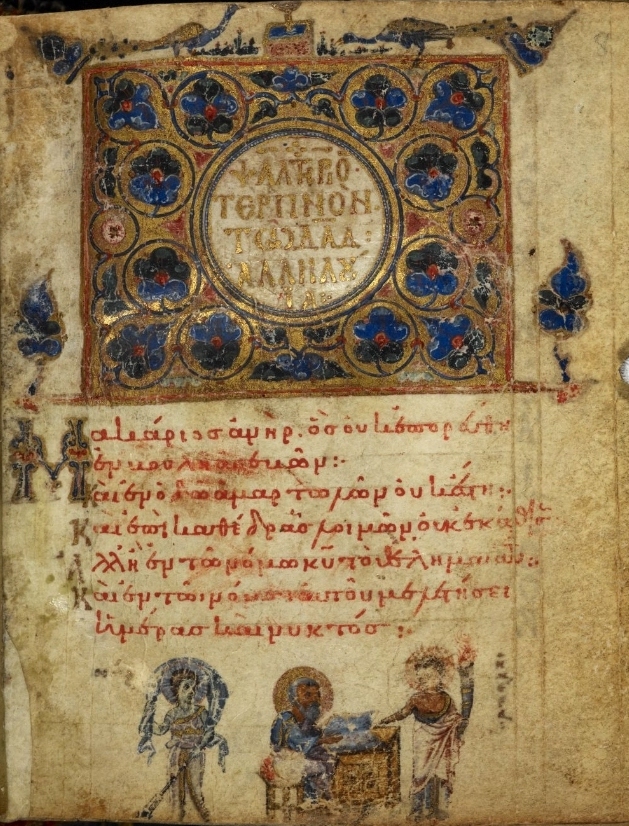 ΤΕΡΠΝΟΝ
ΤῶΔΑΔ:
Μακάριος ἀνὴρ. ὃς οὐκ ἐπορεύθη
ἐν βουλῆ ἀσεβῶν:·
Καὶ ἐν ὁδῶ ἁμαρτωλῶν οὐκ ἔστη:·
Καὶ ἐπὶ καθέδρας λοιμῶν οὐκ ἐκάθισεν
Ἀλλ' ἢ ἐν τῶ νόμω κ̅υ̅ τὸ θέλημα
Καὶ ἐν τῶ νόμω αὐτοῦ μελετήσει
ἡμέρας καὶ νυκτός:·